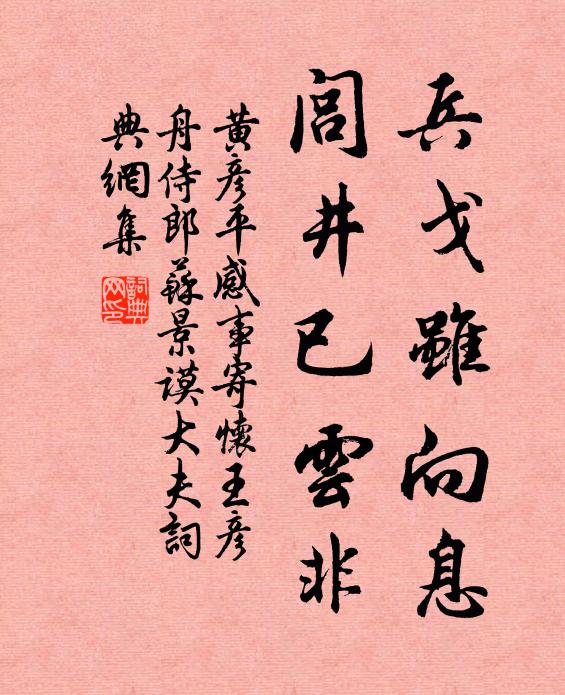 兵戈雖向息
閭井已雲非
黃彥平感事寄懷王彥
舟侍郎蘇景謨大夫詞
典網集
詞典網印